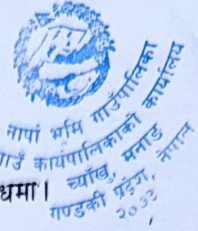 नापां भूमि गाउँपालिका
गाउँ कार्यपालिकाको कार्यालय
च्याखु, मनाङ
गण्डकी प्रदेश, नेपाल
२०७३
धमा।